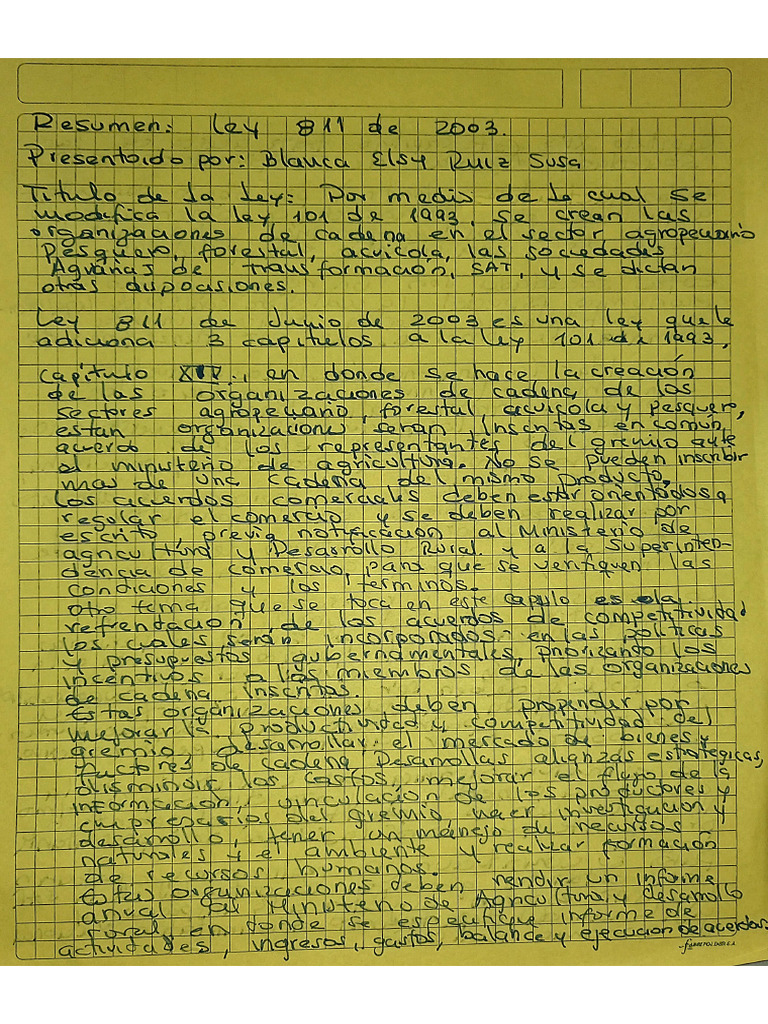 Resumen: Ley 811 de 2003.
Presentado por: Blanca Elsy Ruiz Susa
Titulo de la Ley: Por medio de la cual se
modifica la ley 101 de 1993, se crean las
organizaciones de cadena en el sector agropecuario
Pesquero, forestal, acuicola, las sociedades
Agrarias de transformación, SAT, y se dictan
otras dispociones.
Ley 811 de Junio de 2003 es una ley que le
adiciona 3 capitulos a la ley 101 de 1993,
capitulo XIV., en donde se hace la creación
de las organizaciones de cadena de los
sectores agropecuario, forestal, acuicola y pesquero,
estan organizaciones seran inscritas en común
acuerdo de los representantes del gremio ante
el ministerio de agricultura. No se pueden inscribir
mas de una cadena del mismo producto.
Los acuerdos comerciales deben estar orientados a
regular el comercio y se deben realizar por
escrito, previa notificación al Ministerio de
agricultura y Desarrollo Rural y a la Superinten-
dencia de comercio, para que se verifiquen las
condiciones y los terminos.
otro tema que se toca en este capulo es la
refrendación de los acuerdos de competitividad
los cuales serán incorporados en las políticas
y presupuestos gubernamentales, priorizando los
incentivos a los miembros de las organizaciones
de cadena inscritos.
Estas organizaciones deben propender por
mejorar la productividad y competitividad del
gremio desarrollar el mercado de bienes y
factores de cadena Desarrollas alianzas estrategicas,
disminuir los costos, mejorar el flujo de la
información, vinculación de los productores y
empresarios del gremio, hacer investigación y
desarrollo, tener un manejo de recursos
naturales y el ambiente y realizar formación
de recursos humanos.
Estas organizaciones deben rendir un informe
anual al Ministerio de Agricultura y desarrollo
rural, en donde se especifique informe de
actividades, ingresos, gastos, balance y ejecución de acuerdos.